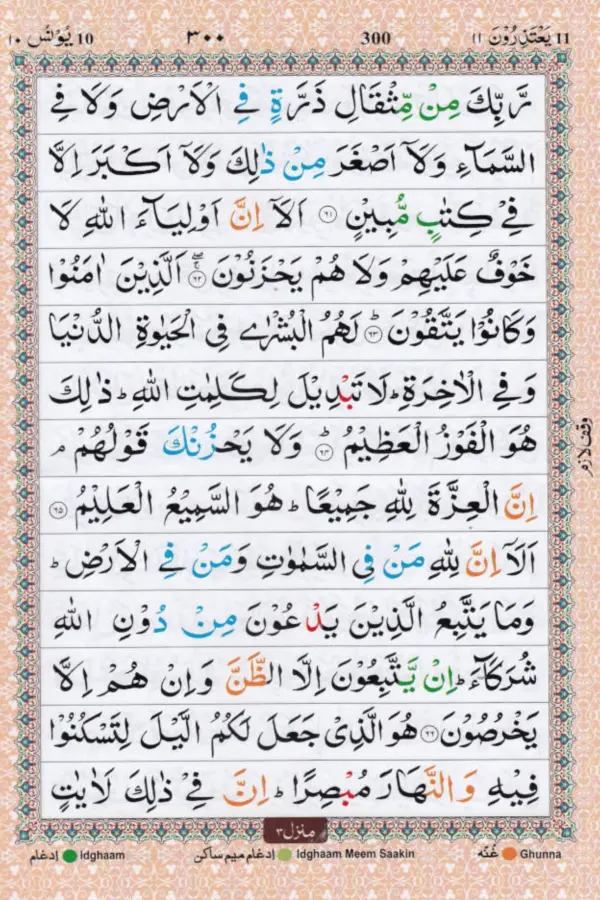 ١٠ يُوْنُس 10 ٣٠٠ 300 يَعْتَذِرُوْنَ ١١ 11
رَّبِّكَ مِنْ مِّثْقَالِ ذَرَّةٍ فِي الْاَرْضِ وَلَا فِي
السَّمَآءِ وَلَاۤ اَصْغَرَ مِنْ ذٰلِكَ وَلَاۤ اَكْبَرَ اِلَّا
فِيْ كِتٰبٍ مُّبِيْنٍ ۝٦١ اَلَاۤ اِنَّ اَوْلِيَآءَ اللهِ لَا
خَوْفٌ عَلَيْهِمْ وَلَا هُمْ يَحْزَنُوْنَ ۝٦٢ اَلَّذِيْنَ اٰمَنُوْا
وَكَانُوْا يَتَّقُوْنَ ؕ ۝٦٣ لَهُمُ الْبُشْرٰى فِي الْحَيٰوةِ الدُّنْيَا
وَفِي الْاٰخِرَةِ ؕ لَا تَبْدِيْلَ لِكَلِمٰتِ اللهِ ؕ ذٰلِكَ
هُوَ الْفَوْزُ الْعَظِيْمُ ؕ ۝٦٤ وَلَا يَحْزُنْكَ قَوْلُهُمْ ۘ
اِنَّ الْعِزَّةَ لِلّٰهِ جَمِيْعًا ؕ هُوَ السَّمِيْعُ الْعَلِيْمُ ۝٦٥
اَلَاۤ اِنَّ لِلّٰهِ مَنْ فِي السَّمٰوٰتِ وَمَنْ فِي الْاَرْضِ ؕ
وَمَا يَتَّبِعُ الَّذِيْنَ يَدْعُوْنَ مِنْ دُوْنِ اللهِ
شُرَكَآءَ ؕ اِنْ يَّتَّبِعُوْنَ اِلَّا الظَّنَّ وَاِنْ هُمْ اِلَّا
يَخْرُصُوْنَ ۝٦٦ هُوَ الَّذِيْ جَعَلَ لَكُمُ الَّيْلَ لِتَسْكُنُوْا
فِيْهِ وَالنَّهَارَ مُبْصِرًا ؕ اِنَّ فِيْ ذٰلِكَ لَاٰيٰتٍ
وقف لازم
منزل ٣
إدغام Idghaam إدغام ميم ساكن Idghaam Meem Saakin غُنّه Ghunna